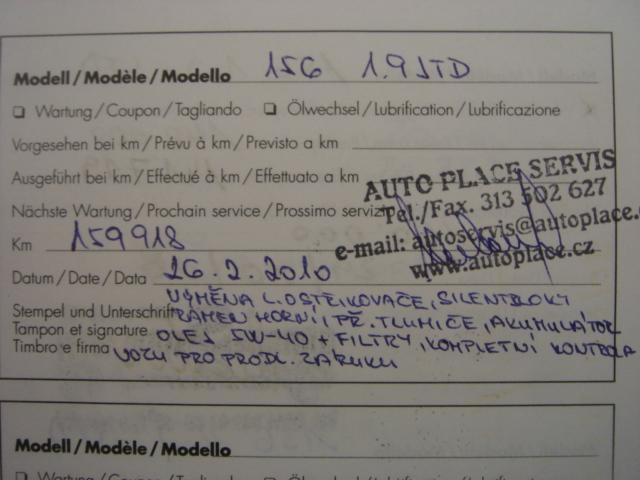 Modell / Modèle / Modello 156 1.9 JTD
❏ Wartung / Coupon / Tagliando ❏ Ölwechsel / Lubrification / Lubrificazione
Vorgesehen bei km / Prévu à km / Previsto a km
Ausgeführt bei km / Effectué à km / Effettuato a km
AUTO PLACE SERVIS
Nächste Wartung / Prochain service / Prossimo servizi
Tel./Fax. 313 502 627
Km 159918
e-mail: autoservis@autoplace.c
www.autoplace.cz
Datum / Date / Data 26.2.2010
Stempel und Unterschrift
Tampon et signature
Timbro e firma
VÝMĚNA L. OSTŘIKOVAČE, SILENTBLOKY
RAMEN HORNÍ, PŘ. TLUMIČE, AKUMULÁTOR
OLEJ 5W-40 + FILTRY, KOMPLETNÍ KONTROLA
VOZU PRO PRODL. ZÁRUKU
Modell / Modèle / Modello
❏ Wartung / Coupon / Tagliando ❏ Ölwechsel / Lubrification / Lubrificazione